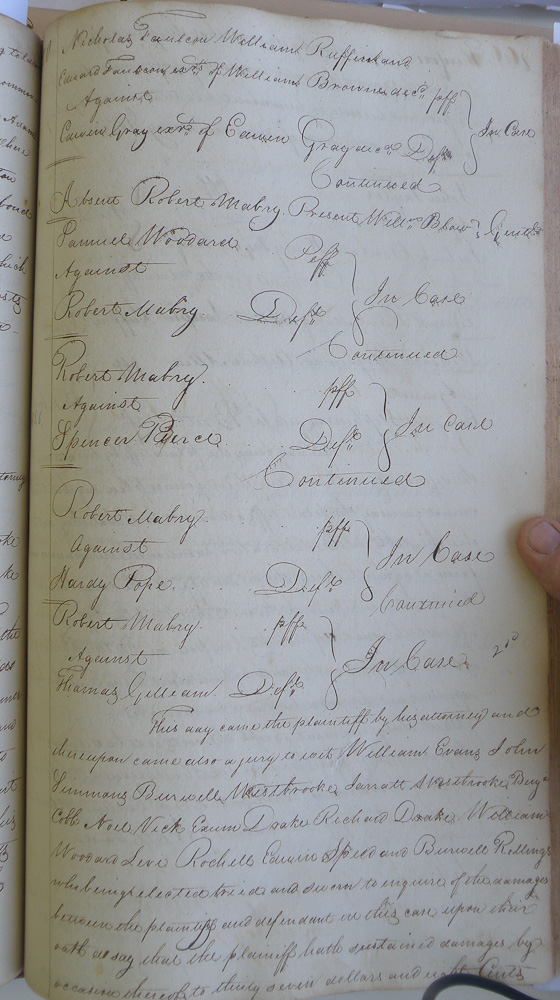 Nicholas Faulcon William Ruffin and
Edward Faulcon exrs of William Browne decd pff
Against } In Case
Edwin Gray exr of Edwin Gray decd Deft
Continued
Absent Robert Mabry. Present Willm Blow } Gent
Samuel Woodard Peff
Against } In Case
Robert Mabry Deft
Continued
Robert Mabry. pff
Against } In Case
Spencer Pierce. Deft
Continued
Robert Mabry. pff
Against } In Case
Hardy Pope. Deft
Continued
Robert Mabry pff
Against } In Case
Thomas Gilliam Deft
This day came the plaintiff by his attorney and
thereupon came also a jury to wit William Evans John
Simmons Burwell Westbrooke Jarratt Westbrooke Benja
Cobb Noel Vick Exum Drake Richard Drake William
Woodard Levi Rochell Edwin Speed and Burwell Rollings
who being elected tried and sworn to enquire of the damages
between the plaintiff and defendant in this case upon their
oath do say that the plaintiff hath sustained damages by
occasion thereof to thirty seven dollars and eight Cents